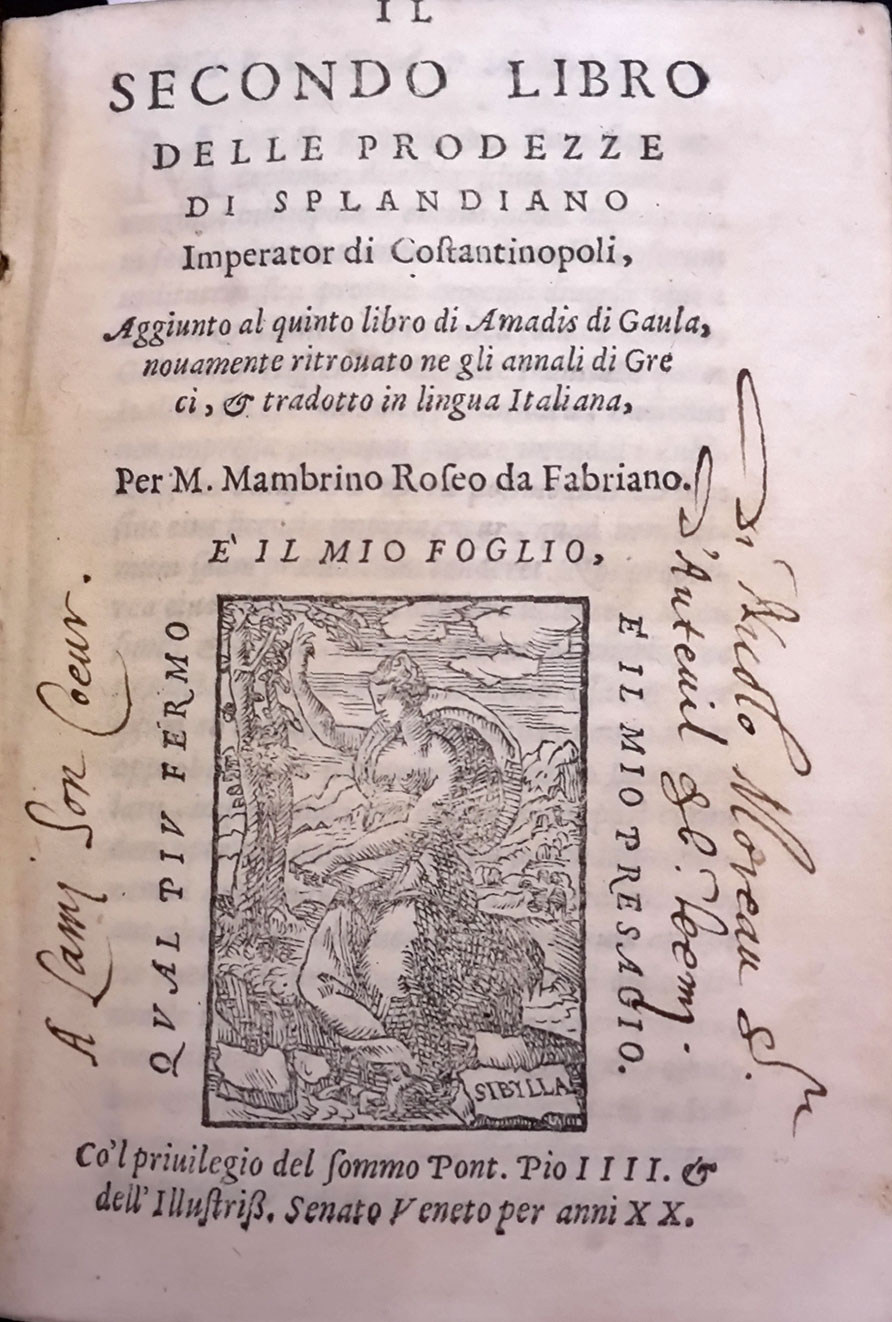 IL
SECONDO LIBRO
DELLE PRODEZZE
DI SPLANDIANO
Imperator di Coſtantinopoli,
Aggiunto al quinto libro di Amadis di Gaula,
nouamente ritrouato ne gli annali di Gre
ci, & tradotto in lingua Italiana,
Per M. Mambrino Roſeo da Fabriano.
E' IL MIO FOGLIO,
QVAL PIV FERMO
E' IL MIO PRESAGIO.
SIBYLLA
Co'l priuilegio del ſommo Pont. Pio IIII. &
dell' Illuſtriß. Senato Veneto per anni XX.
A Lamy Son Coeur.
Di Nicolo Moreau Sr
d'Auteuil &c.